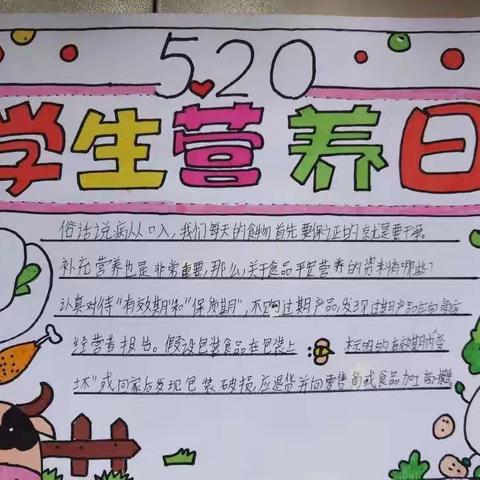 5.20
学生营养日
俗话说病从口入,我们每天的食物首先要保证的就是要干净。
补充营养也是非常重要,那么,关于食品平贸营养的资料有哪些?
认真对待"有效期"和"保质期",不买过期产品,发现过期产品应向
经营者报告。假设包装食品在包装上 标明的有效期内变
坏"或回家后发现包装破损,应退货并向零售商或食品加工商